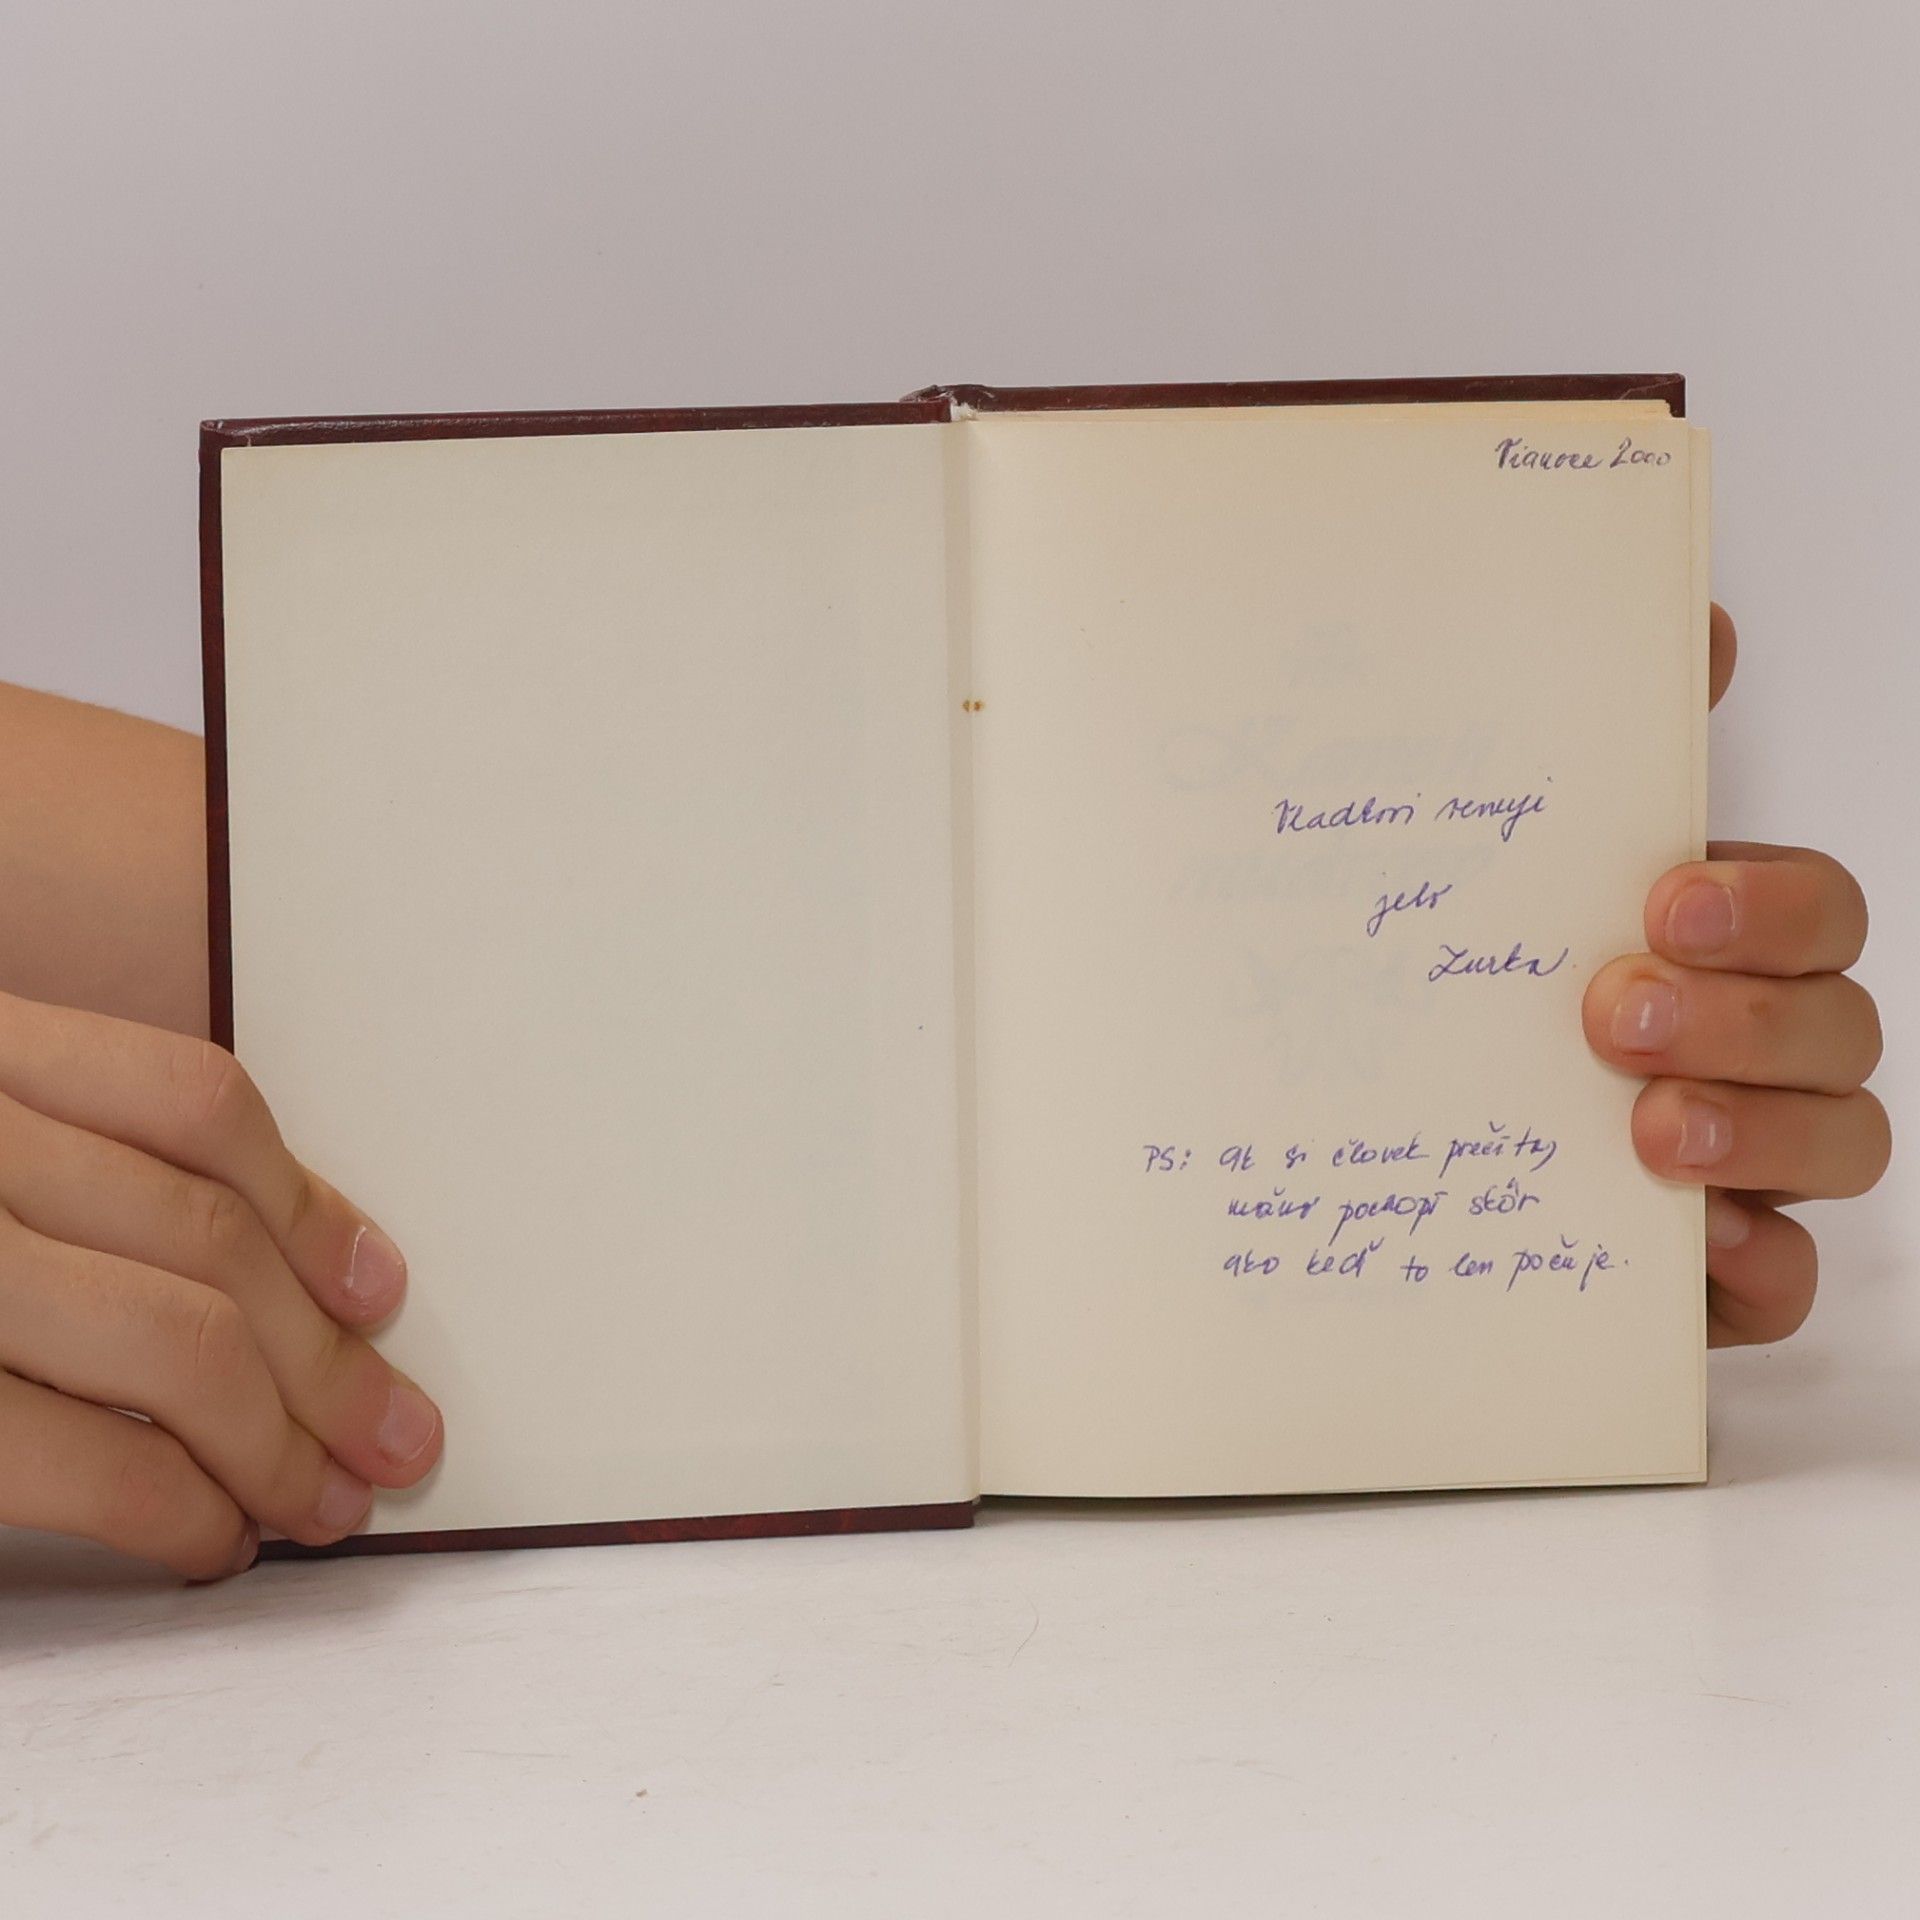 Vianoce 2000
Vladkovi venuje
jeho
Zurka
PS: ak si človek prečíta,
možno pochopí skôr
ako keď to len počuje.